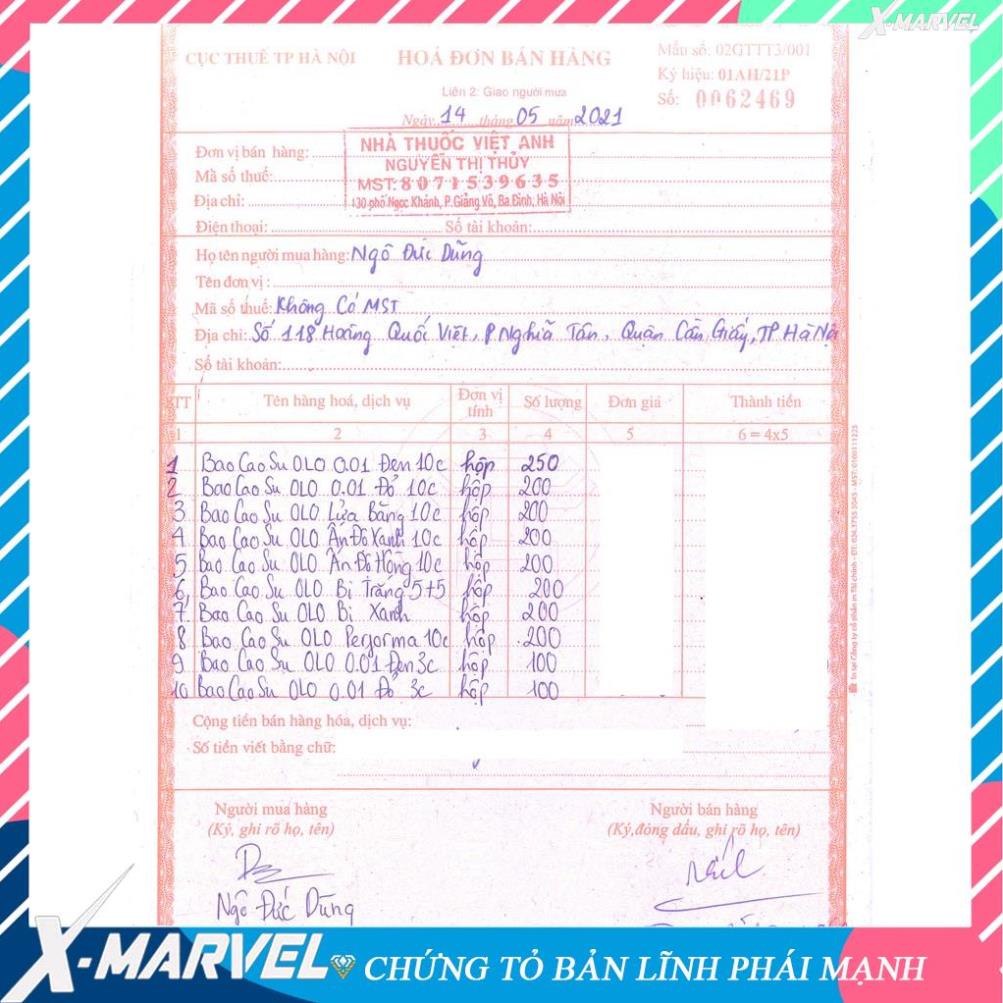 X-MARVEL
CỤC THUẾ TP HÀ NỘI
HOÁ ĐƠN BÁN HÀNG
Mẫu số: 02GTTT3/001
Liên 2: Giao người mua
Ký hiệu: 01AH/21P
Số: 0062469
Ngày 14 tháng 05 năm 2021
NHÀ THUỐC VIỆT ANH
NGUYỄN THỊ THỦY
MST: 8071539635
130 phố Ngọc Khánh, P. Giảng Võ, Ba Đình, Hà Nội
Đơn vị bán hàng:
Mã số thuế:
Địa chỉ:
Điện thoại: Số tài khoản:
Họ tên người mua hàng: Ngô Đức Dũng
Tên đơn vị:
Mã số thuế: Không Có MST
Địa chỉ: Số 118 Hoàng Quốc Việt, P Nghĩa Tân, Quận Cầu Giấy, TP Hà Nội
Số tài khoản:
STT Tên hàng hoá, dịch vụ Đơn vị tính Số lượng Đơn giá Thành tiền
1 2 3 4 5 6 = 4x5
1 Bao Cao Su OLO 0.01 Đen 10c hộp 250
2 Bao Cao Su OLO 0.01 Đỏ 10c hộp 200
3 Bao Cao Su OLO Lửa Băng 10c hộp 200
4 Bao Cao Su OLO Ấn Độ Xanh 10c hộp 200
5 Bao Cao Su OLO Ấn Độ Hồng 10c hộp 200
6 Bao Cao Su OLO Bi Trắng 5+5 hộp 200
7 Bao Cao Su OLO Bi Xanh hộp 200
8 Bao Cao Su OLO Performa 10c hộp 200
9 Bao Cao Su OLO 0.01 Đen 3c hộp 100
10 Bao Cao Su OLO 0.01 Đỏ 3c hộp 100
Cộng tiền bán hàng hóa, dịch vụ:
Số tiền viết bằng chữ:
Người mua hàng
(Ký, ghi rõ họ, tên)
Người bán hàng
(Ký, đóng dấu, ghi rõ họ, tên)
Ngô Đức Dũng
X-MARVEL
CHỨNG TỎ BẢN LĨNH PHÁI MẠNH